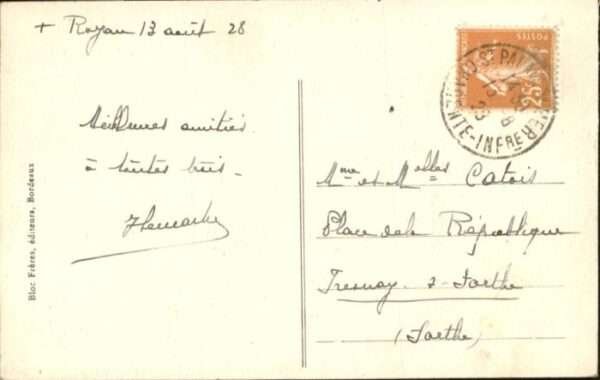 + Royan 13 août 28
Meilleures amitiés
à toutes trois -
Mme et Melles Catois
Place de la République
Fresnay s- Sarthe
(Sarthe)
POSTES
25
ST PALAIS S MER
NTE-INFRE
Bloc Frères, éditeurs, Bordeaux